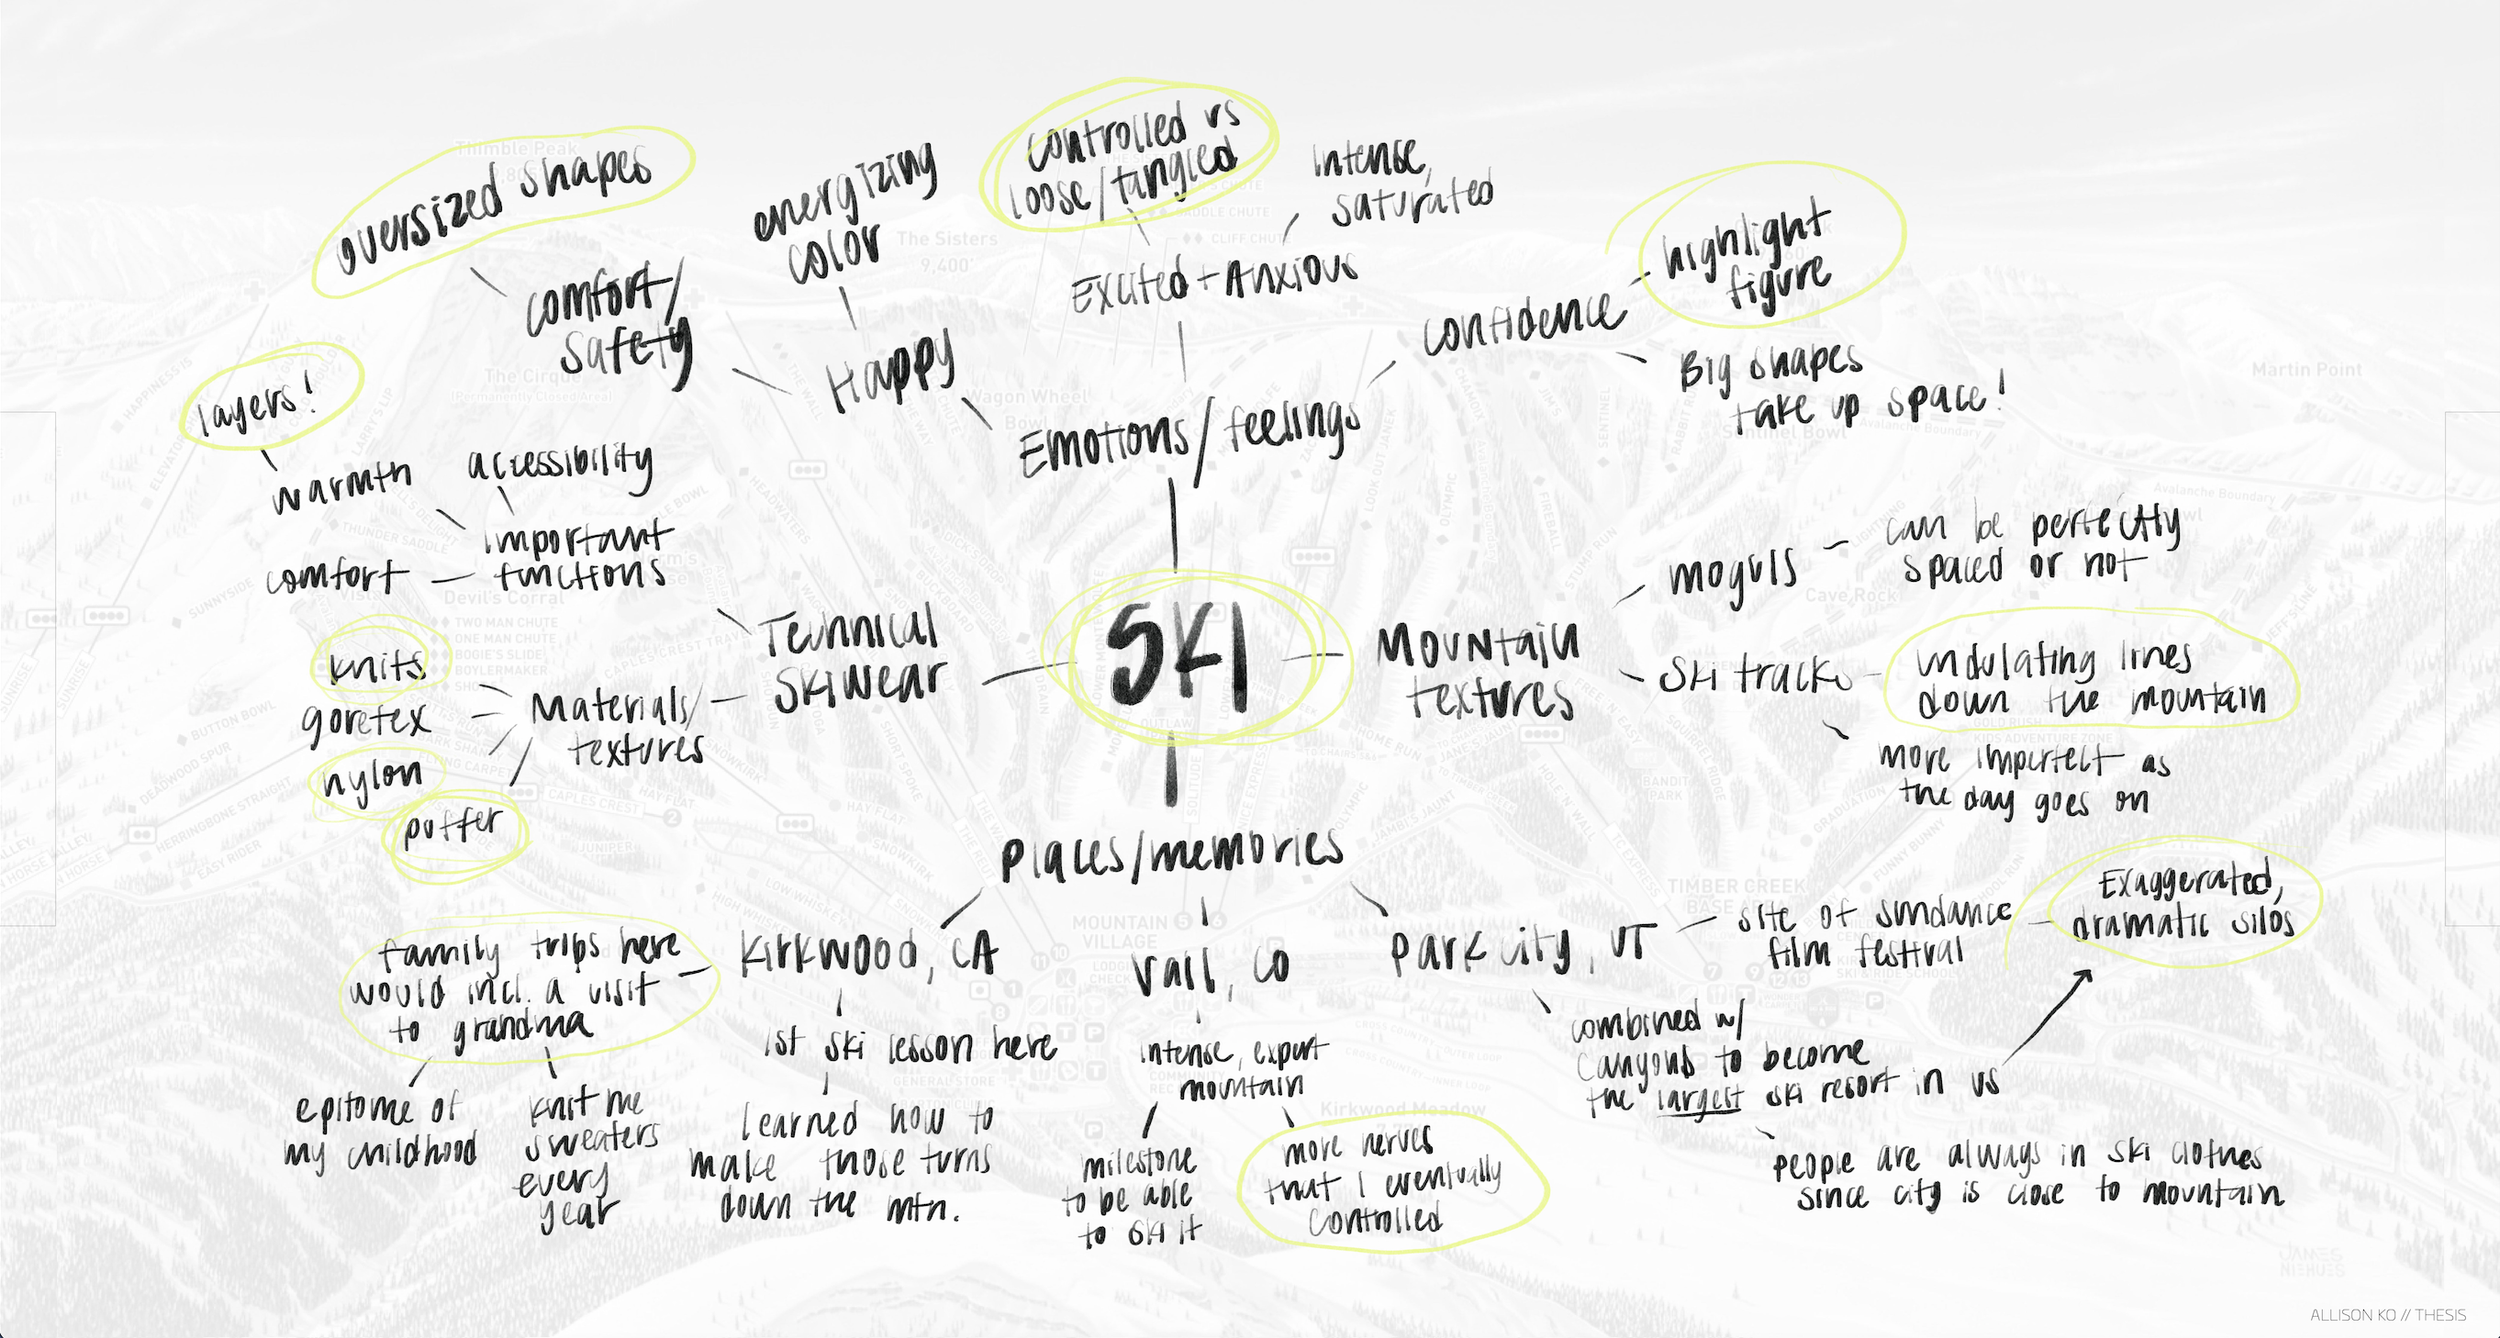 oversized shapes
comfort/
safety
energizing
color
Happy
controlled vs
loose/tangled
intense,
saturated
Excited + Anxious
Emotions/feelings
confidence
highlight
figure
Big shapes
take up space!
layers!
warmth
accessibility
important
functions
comfort
Technical
Skiwear
knits
goretex
nylon
puffer
Materials/
textures
SKI
Mountain
textures
moguls
can be perfectly
spaced or not
Ski tracks
undulating lines
down the mountain
more imperfect as
the day goes on
Places/memories
Kirkwood, CA
family trips here
would incl. a visit
to grandma
epitome of
my childhood
knit me
sweaters
every
year
1st ski lesson here
learned how to
make those turns
down the mtn.
Vail, CO
intense, expert
mountain
milestone
to be able
to ski it
more nerves
that I eventually
controlled
Park City, UT
site of sundance
film festival
Exaggerated,
dramatic silos
combined w/
canyons to become
the largest ski resort in US
people are always in ski clothes
since city is close to mountain
Thimble Peak
The Sisters
9,400'
The Cirque
(Permanently Closed Area)
Wagon Wheel
Martin Point
Sentinel Bowl
Avalanche Boundary
Devil's Corral
TWO MAN CHUTE
ONE MAN CHUTE
BOGIE'S SLIDE
BOYLERMAKER
Cave Rock
MOUNTAIN
VILLAGE
TIMBER CREEK
Kirkwood Meadow
GENERAL STORE
JAMES
NIEHUES
ALLISON KO // THESIS